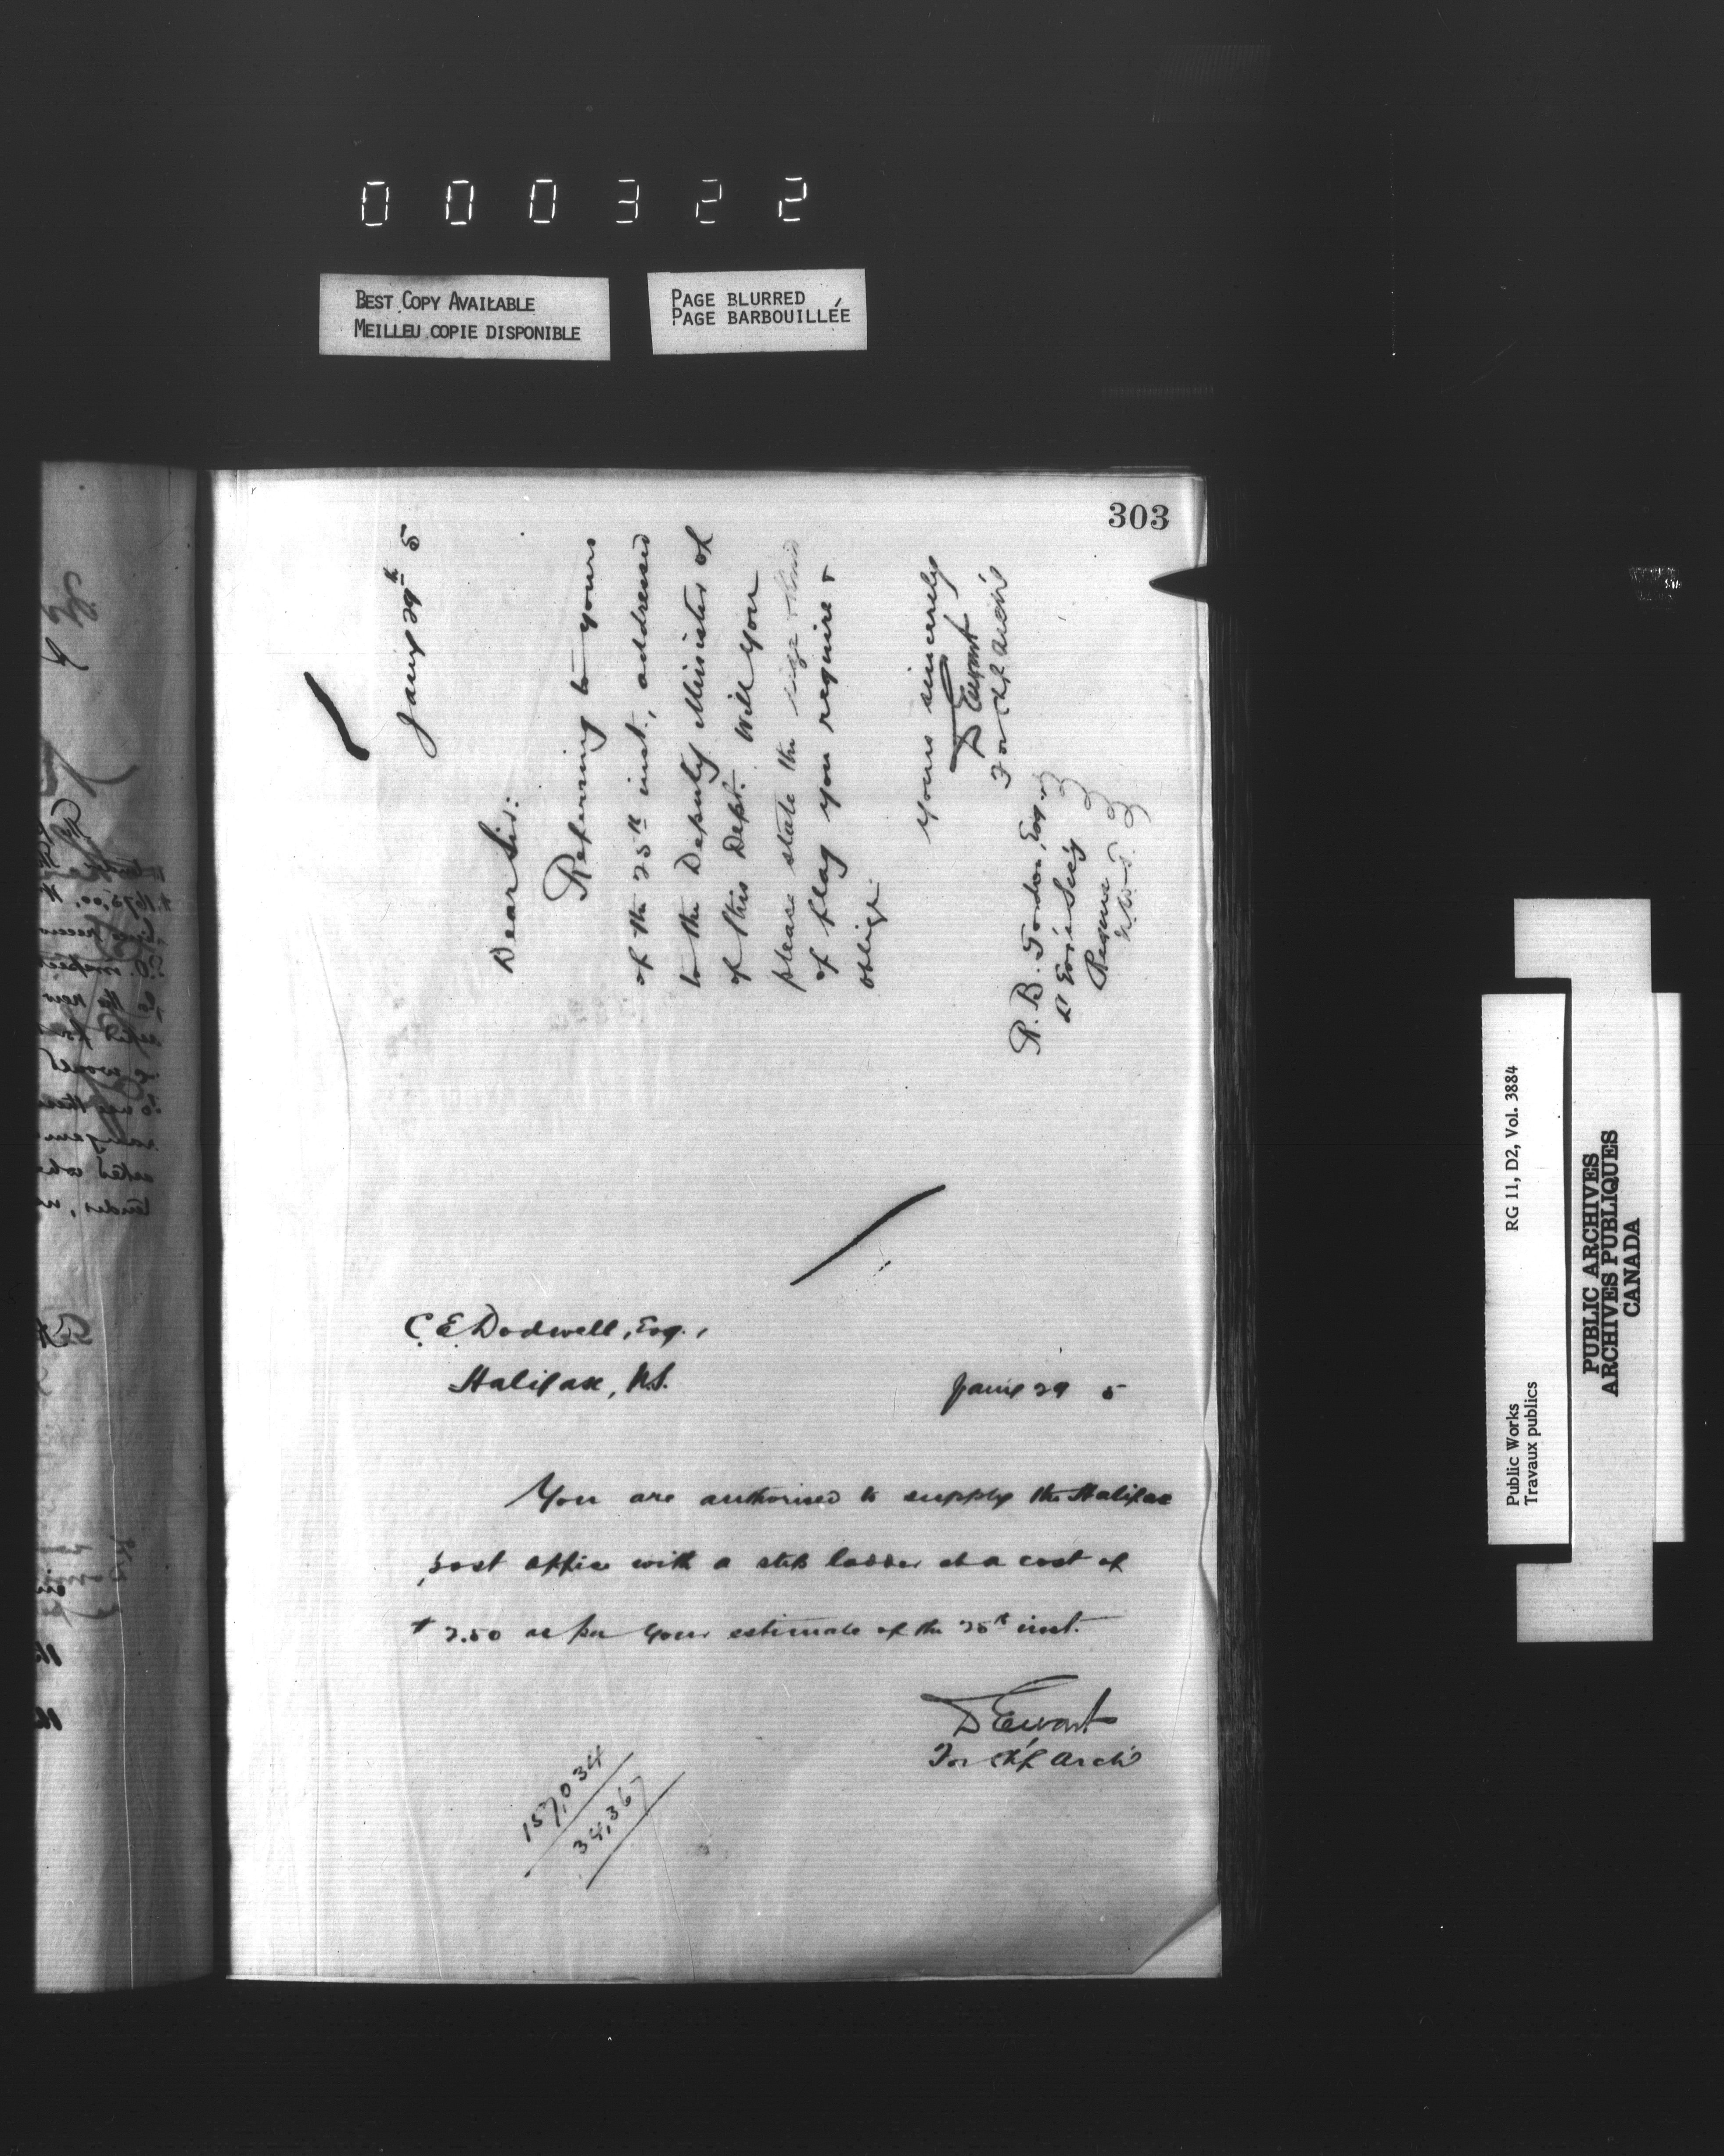 000322
BEST COPY AVAILABLE
MEILLEU COPIE DISPONIBLE
PAGE BLURRED
PAGE BARBOUILLÉE
303
Jany 29th 5
Dear Sir:
Referring to yours
of the 25th inst., addressed
to the Deputy Minister of
of this Dept. Will you
please state the size & kind
of flag you require &
oblige
Yours sincerely
D Ewart
For Chf Arch't
R. B. Gordon, Esq.
Lt Gov's Sec'y
Regina
N.W.T.
C. E. Dodwell, Esq.,
Halifax, N.S.
Jany 29 5
You are authorised to supply the Halifax
post office with a step ladder at a cost of
$2.50 as per your estimate of the 25th inst.
D Ewart
For Chf Arch't
157,034
34,367
Public Works
Travaux publics
RG 11, D2, Vol. 3884
PUBLIC ARCHIVES
ARCHIVES PUBLIQUES
CANADA